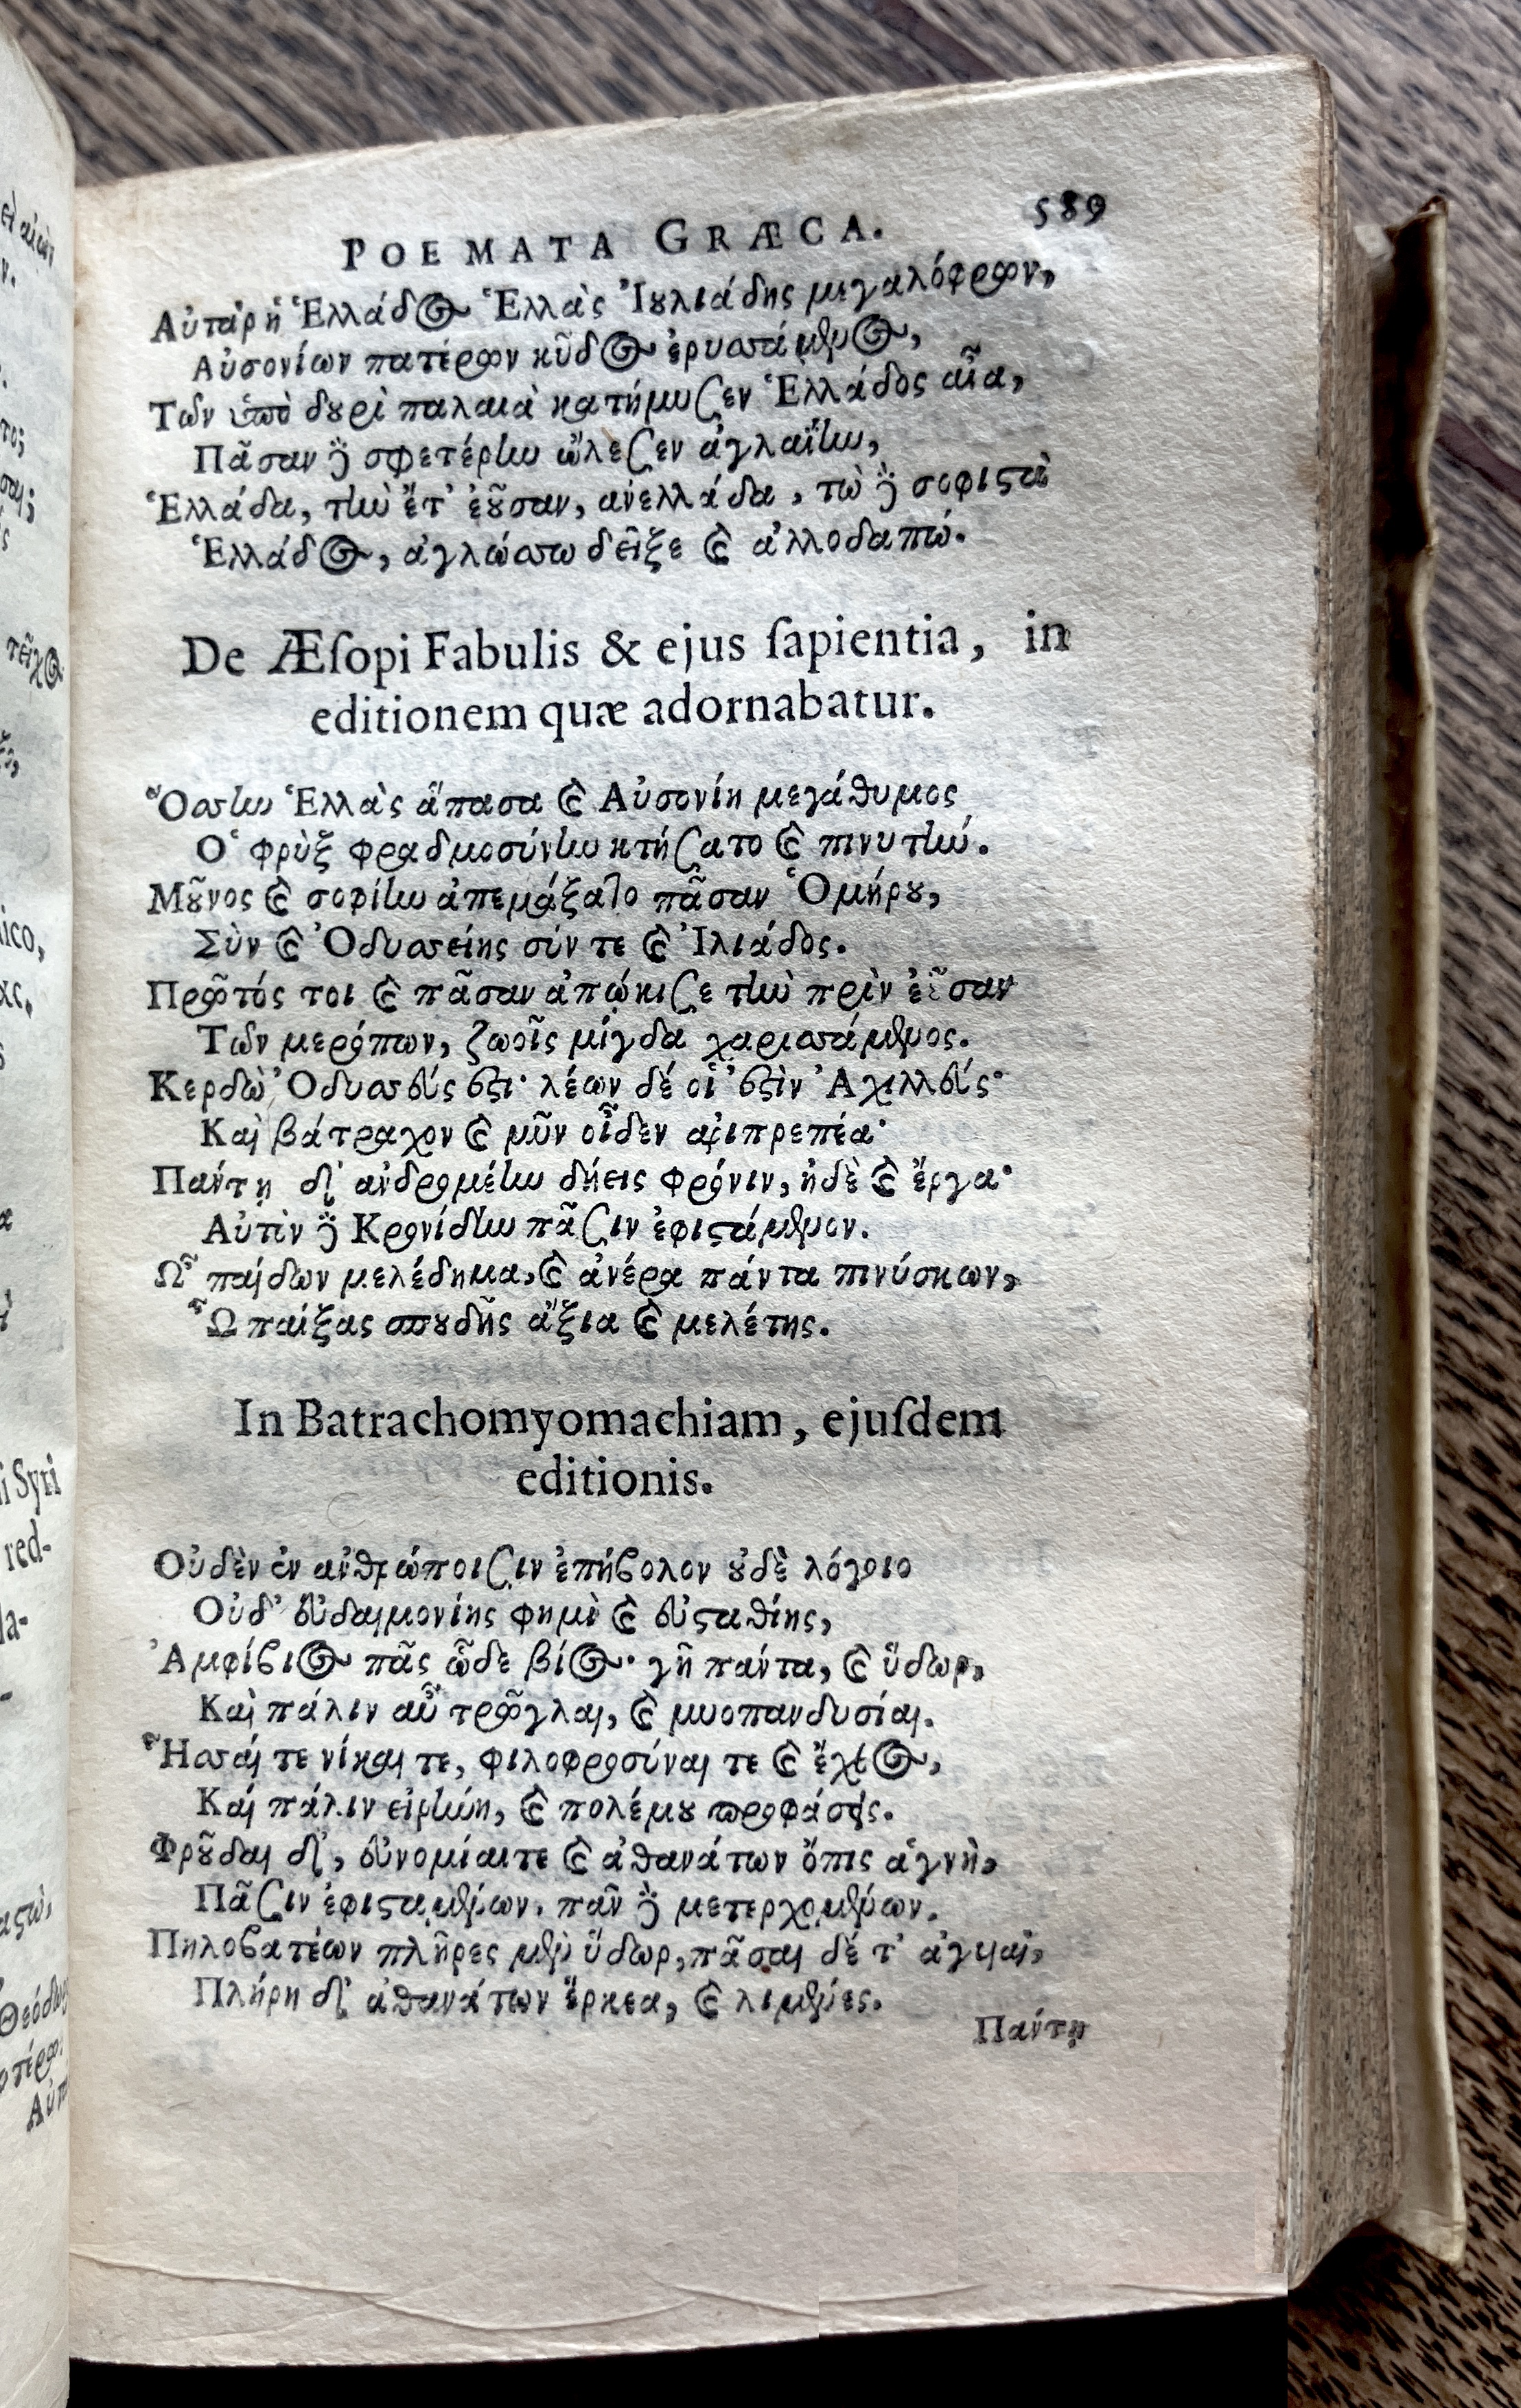 POEMATA GRÆCA. 589
Αὐτὰρ ἡ Ἑλλάδος Ἑλλὰς Ἰουλιάδης μεγαλόφρων,
Αὐσονίων πατέρων κῦδος ἐρυσσάμενος,
Τῶν ὑπὸ δουρὶ παλαιὰ κατήμυσεν Ἑλλάδος αἶα,
Πᾶσαν δὲ σφετέρην ὤλεσεν ἀγλαΐην,
Ἑλλάδα, τὴν ἔτ' ἐοῦσαν, ἀνελλάδα, τὼ δὲ σοφιστὰ
Ἑλλάδος, ἀγλώσσω δεῖξε καὶ ἀλλοδαπώ.
De Æſopi Fabulis & ejus ſapientia, in
editionem quæ adornabatur.
Ὅσσην Ἑλλὰς ἅπασα καὶ Αὐσονίη μεγάθυμος
Ὁ φρὺξ φραδμοσύνην κτήσατο καὶ πινυτήν.
Μοῦνος καὶ σοφίην ἀπεμάξατο πᾶσαν Ὁμήρου,
Σὺν καὶ Ὀδυσσείης σύν τε καὶ Ἰλιάδος.
Πρῶτός τοι καὶ πᾶσαν ἀπῴκισε τὴν πρὶν ἐοῦσαν
Τῶν μερόπων, ζωοῖς μίγδα χαρισσάμενος.
Κερδὼ Ὀδυσσεύς ἐστι· λέων δέ οἱ ἐστὶν Ἀχιλλεύς·
Καὶ βάτραχον καὶ μῦν οἶδεν ἀριπρεπέα·
Πάντη δ' ἀνδρομέην δήεις φρόνιν, ἠδὲ καὶ ἔργα·
Αὐτὶν δὲ Κρονίδην πᾶσιν ἐφιστάμενον.
Ὦ παίδων μελέδημα, καὶ ἀνέρα πάντα πινύσκων,
Ὦ παίξας σπουδῆς ἄξια καὶ μελέτης.
In Batrachomyomachiam, ejuſdem
editionis.
Οὐδὲν ἐν ἀνθρώποισιν ἐπήβολον οὐδὲ λόγοιο
Οὐδ' εὐδαιμονίης φημὶ καὶ εὐσταθίης,
Ἀμφίβιος πᾶς ὧδε βίος· γῆ πάντα, καὶ ὕδωρ,
Καὶ πάλιν αὖ τρῶγλαι, καὶ μυοπανδυσίαι.
Ἧσσαί τε νίκαι τε, φιλοφροσύναι τε καὶ ἔχθος,
Καὶ πάλιν εἰρήνη, καὶ πολέμου προφάσεις.
Φροῦδαι δ', εὐνομίαι τε καὶ ἀθανάτων ὄπις ἁγνὴ,
Πᾶσιν ἐφισταμένων, πᾶν δὲ μετερχομένων.
Πηλοβατέων πλῆρες μὲν ὕδωρ, πᾶσαι δέ τ' ἀγυιαί,
Πλήρη δ' ἀθανάτων ἕρκεα, καὶ λιμένες.
Πάντη